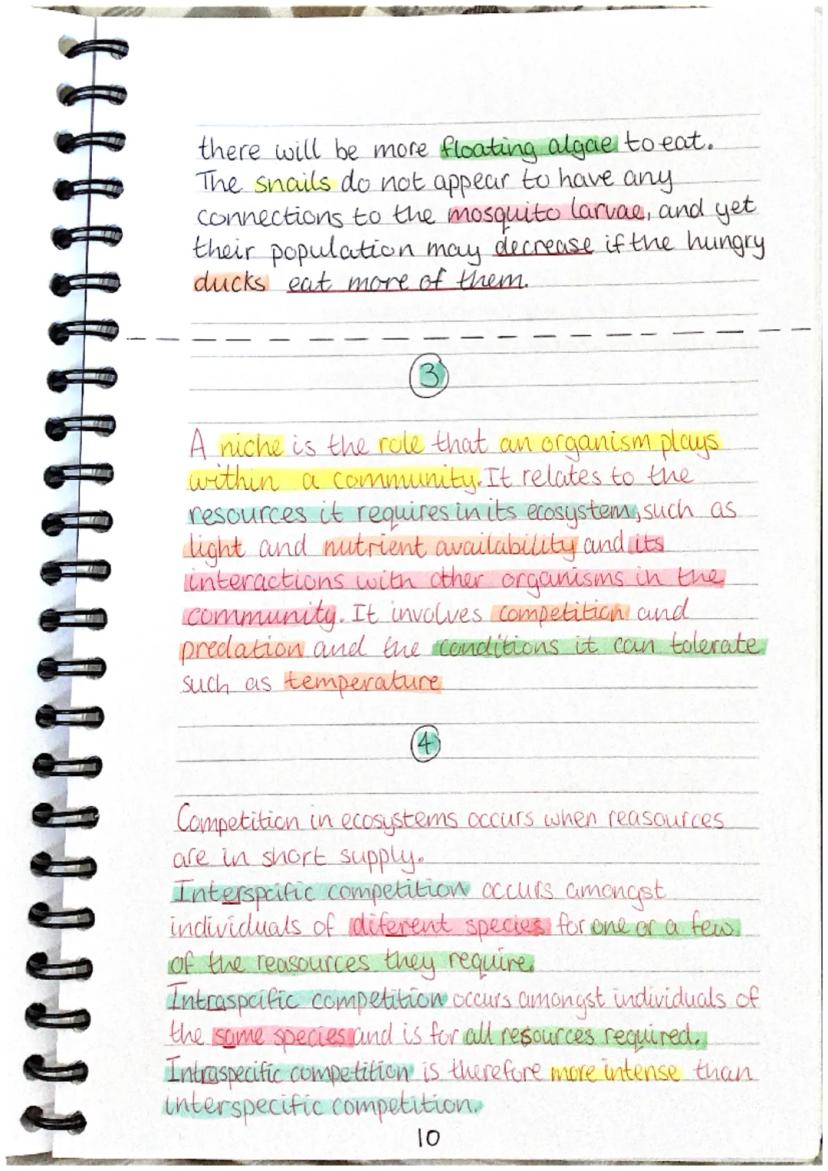 there will be more floating algae to eat.
The snails do not appear to have any
connections to the mosquito larvae, and yet
their population may decrease if the hungry
ducks eat more of them.
3
A niche is the role that an organism plays
within a community. It relates to the
resources it requires in its ecosystem, such as
light and nutrient availability and its
interactions with other organisms in the
community. It involves competition and
predation and the conditions it can tolerate
such as temperature
4
Competition in ecosystems occurs when reasources
are in short supply.
Interspific competition occurs amongst
individuals of diferent species for one or a few
of the reasources they require.
Intraspcific competition occurs amongst individuals of
the same species and is for all resources required.
Intraspecific competition is therefore more intense than
interspecific competition.
10